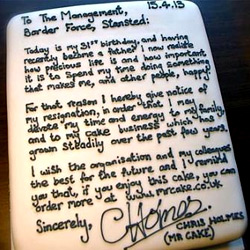 15.4.13
To The Management,
Border Force, Stansted:
Today is my 31st birthday, and having
recently become a father I now realise
how precious life is and how important
it is to spend my time doing something
that makes me, and other people, happy.
For that reason I hereby give notice of
my resignation, in order that I may
devote my time and energy to my family,
and to my cake business which has
grown steadily over the past few years.
I wish the organisation and my colleagues
the best for the future and I remind
you that, if you enjoy this cake, you can
order more at www.mrcake.co.uk
Sincerely,
CHolmes
CHRIS HOLMES
(MR CAKE)